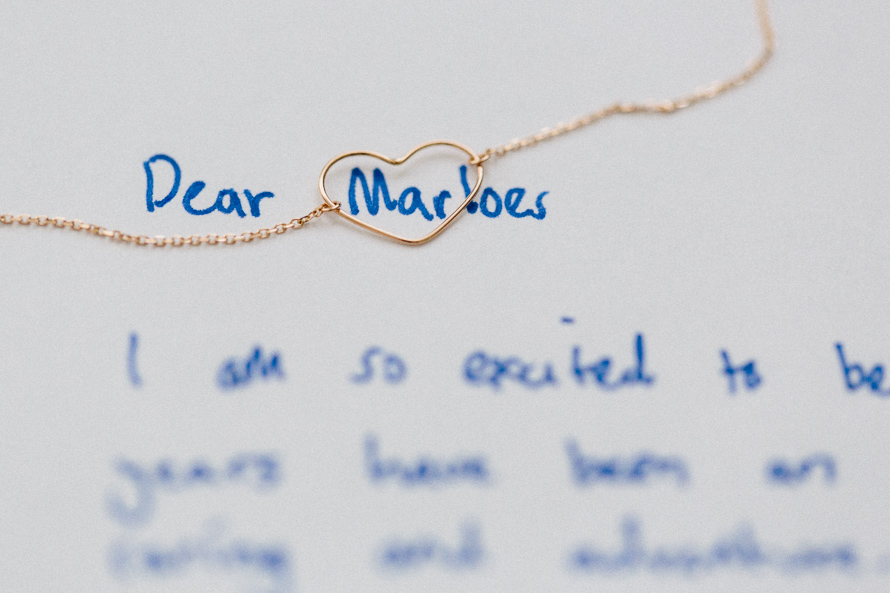 Dear Marloes
I am so excited to be
years have been an
and